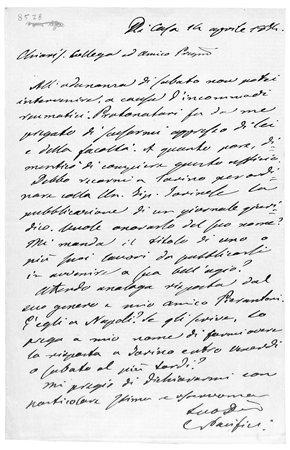 8528
Di Casa 14 aprile
Chiariss. Collega ed Amico
All'adunanza di sabato non potei
intervenire, a causa d'incommodi
reumatici. Protonotari fu da me
pregato di scusarmi appresso di lei
e della facoltà. A quanto pare, di-
menticò di compiere questo uffizio.
Debbo recarmi a Torino per ordi-
nare colla Un. Tip. Torinese la
pubblicazione di un giornale giuri-
dico. Vuole onorarlo del suo nome?
Mi manda il titolo di uno o
più suoi lavori da pubblicarsi
in avvenire a suo bell'agio?
Attendo analoga risposta dal
suo genero e mio amico
È egli a Napoli? Se gli scrive, lo
prega a mio nome di farmi avere
la risposta a Torino entro venerdì
o sabato al più tardi?
Mi pregio di dichiararmi con
particolare stima e osservanza